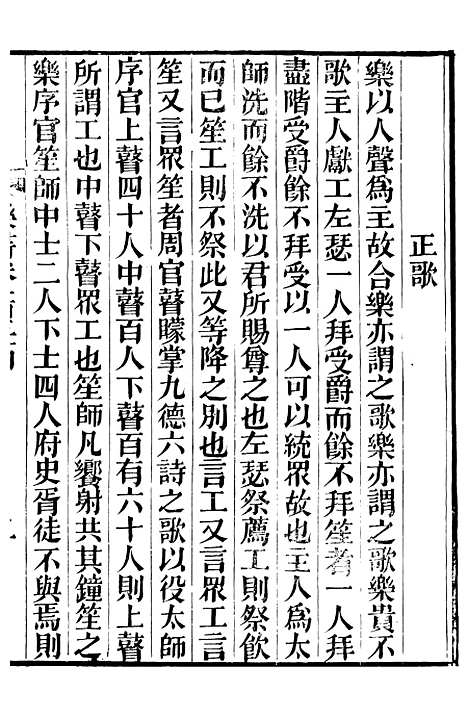 正歌
樂以人聲爲主故合樂亦謂之歌樂亦謂之歌樂貴不
歌主人獻工左瑟一人拜受爵而餘不拜笙者一人拜
盡階受爵餘不拜受以一人可以統眾故也主人爲太
師洗而餘不洗以君所賜尊之也左瑟祭薦工則祭飲
而已笙工則不祭此又等降之別也言工又言眾工言
笙又言眾笙者周官瞽矇掌九德六詩之歌以役太師
序官上瞽四十人中瞽百人下瞽百有六十人則上瞽
所謂工也中瞽下瞽眾工也笙師凡饗射共其鐘笙之
樂序官笙師中士二人下士四人府史胥徒不與焉則